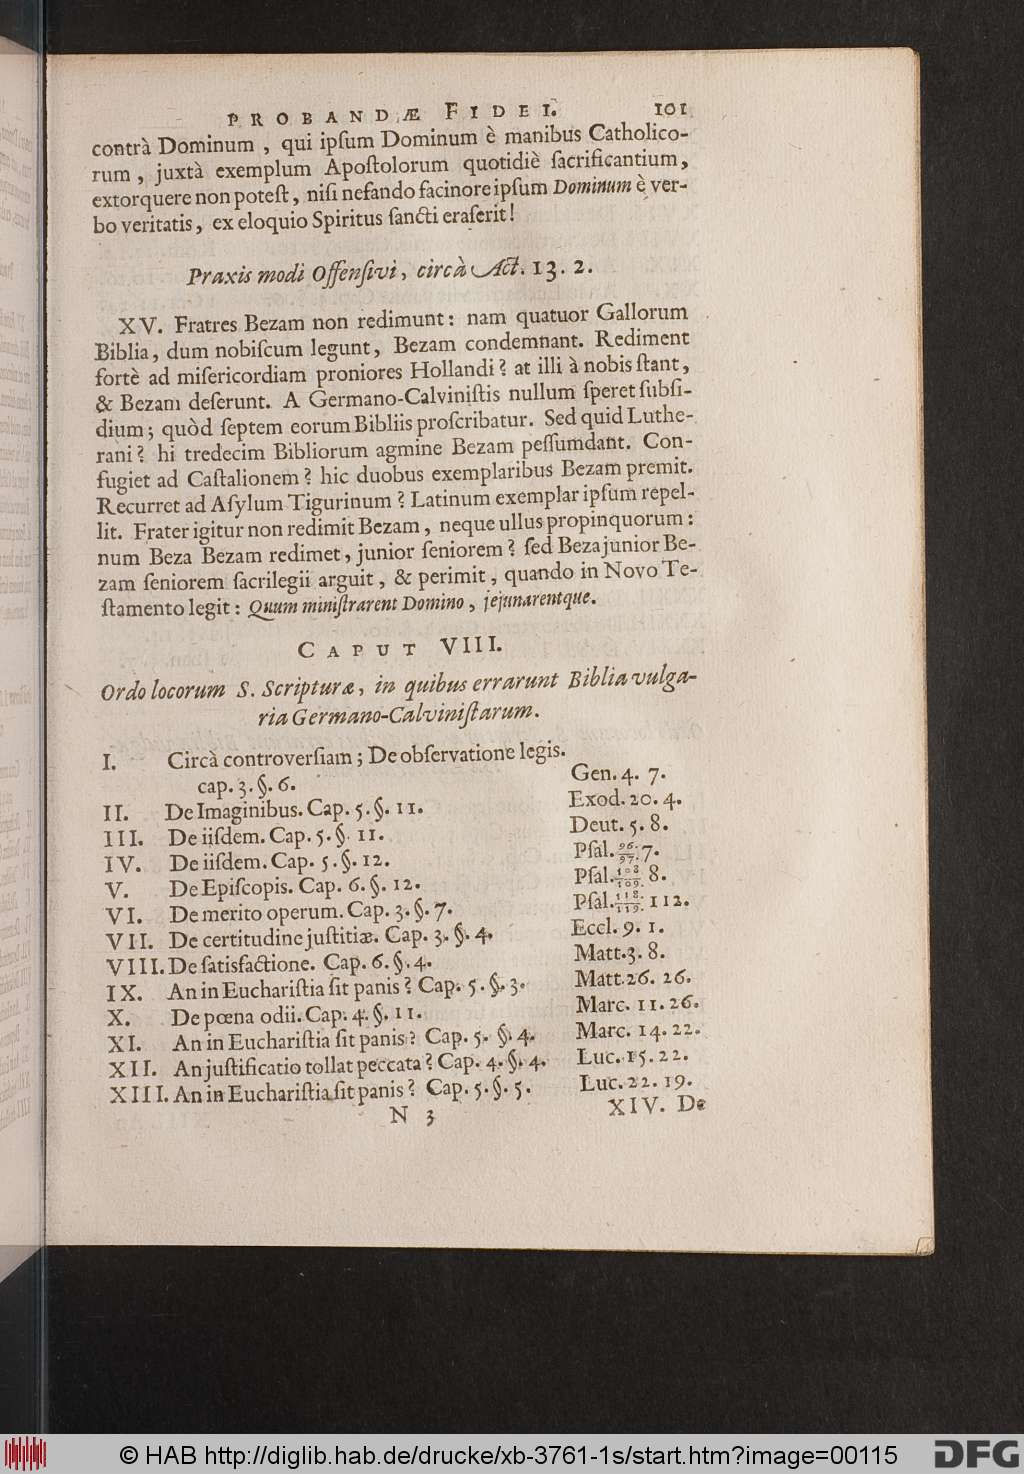 PROBANDÆ FIDEI. 101
contrà Dominum , qui ipſum Dominum è manibus Catholico-
rum , juxtà exemplum Apoſtolorum quotidiè ſacrificantium,
extorquere non poteſt, niſi nefando facinore ipſum Dominum è ver-
bo veritatis, ex eloquio Spiritus ſancti eraſerit!
Praxis modi Offenſivi, circà Act. 13. 2.
XV. Fratres Bezam non redimunt: nam quatuor Gallorum
Biblia, dum nobiſcum legunt, Bezam condemnant. Rediment
fortè ad miſericordiam proniores Hollandi? at illi à nobis ſtant,
& Bezam deſerunt. A Germano-Calviniſtis nullum ſperet ſubſi-
dium; quòd ſeptem eorum Bibliis proſcribatur. Sed quid Luthe-
rani? hi tredecim Bibliorum agmine Bezam peſſumdant. Con-
fugiet ad Caſtalionem? hic duobus exemplaribus Bezam premit.
Recurret ad Aſylum Tigurinum? Latinum exemplar ipſum repel-
lit. Frater igitur non redimit Bezam, neque ullus propinquorum:
num Beza Bezam redimet, junior ſeniorem? ſed Beza junior Be-
zam ſeniorem ſacrilegii arguit, & perimit, quando in Novo Te-
ſtamento legit: Quum miniſtrarent Domino, jejunarentque.
CAPUT VIII.
Ordo locorum S. Scripturæ, in quibus errarunt Biblia vulga-
ria Germano-Calviniſtarum.
I. Circà controverſiam; De obſervatione legis.
cap. 3. §. 6. Gen. 4. 7.
II. De Imaginibus. Cap. 5. §. 11. Exod. 20. 4.
III. De iiſdem. Cap. 5. §. 11. Deut. 5. 8.
IV. De iiſdem. Cap. 5. §. 12. Pſal. 96./97. 7.
V. De Epiſcopis. Cap. 6. §. 12. Pſal. 108/109. 8.
VI. De merito operum. Cap. 3. §. 7. Pſal. 118./119. 112.
VII. De certitudine juſtitiæ. Cap. 3. §. 4. Eccl. 9. 1.
VIII. De ſatisfactione. Cap. 6. §. 4. Matt. 3. 8.
IX. An in Euchariſtia ſit panis? Cap. 5. §. 3. Matt. 26. 26.
X. De pœna odii. Cap. 4. §. 11. Marc. 11. 26.
XI. An in Euchariſtia ſit panis? Cap. 5. §. 4. Marc. 14. 22.
XII. An juſtificatio tollat peccata? Cap. 4. §. 4. Luc. 15. 22.
XIII. An in Euchariſtia ſit panis? Cap. 5. §. 5. Luc. 22. 19.
N 3 XIV. De
© HAB http://diglib.hab.de/drucke/xb-3761-1s/start.htm?image=00115
DFG